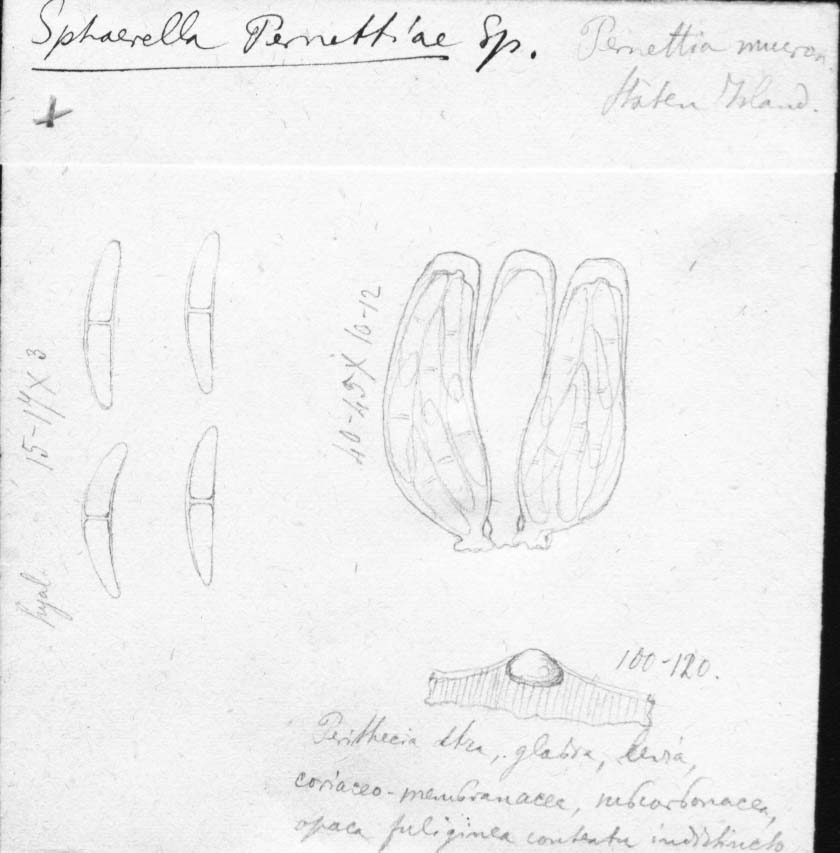 Sphaerella Pernettiae Sp.
Pernettia mucron.
Staten Island.
+
15-17 X 3
hyal.
40-45 X 10-12
100-120.
Perithecia atra, glabra, levia,
coriaceo-membranacea, subcarbonacea,
opaca fuliginea contextu indistincto